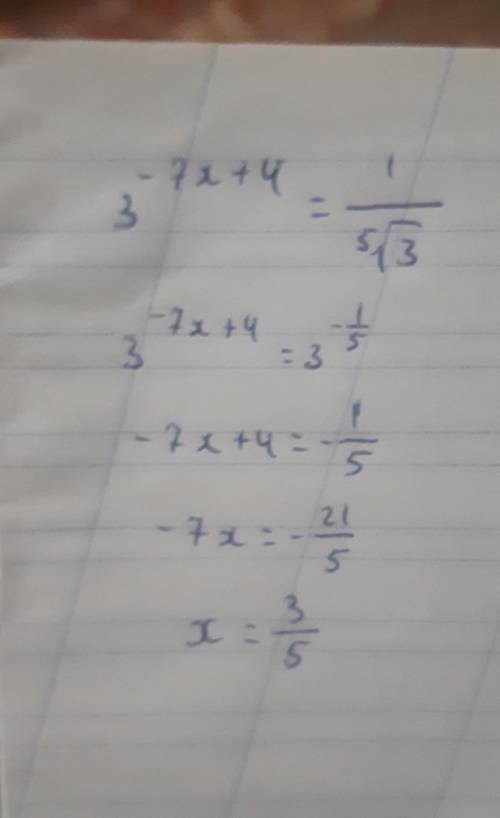 3^{-7x+4} = \frac{1}{\sqrt[5]{3}}
3^{-7x+4} = 3^{-\frac{1}{5}}
-7x+4 = -\frac{1}{5}
-7x = -\frac{21}{5}
x = \frac{3}{5}